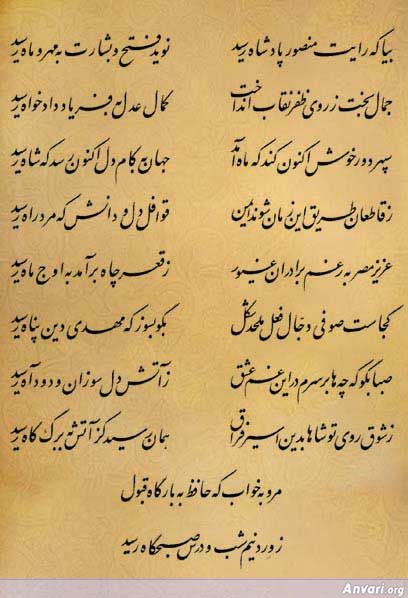 بیا که رایت منصور پادشاه رسید نوید فتح و بشارت به مهر و ماه رسید
جمال بخت ز روی ظفر نقاب انداخت کمال عدل به فریاد دادخواه رسید
سپهر دور خوش اکنون کند که ماه آمد جهان به کام دل اکنون رسد که شاه رسید
ز قاطعان طریق این زمان شوند ایمن قوافل دل و دانش که مرد راه رسید
عزیز مصر به رغم برادران غیور ز قعر چاه برآمد به اوج ماه رسید
کجاست صوفی دجال فعل ملحدشکل بگو بسوز که مهدی دین پناه رسید
صبا بگو که چه‌ها بر سرم در این غم عشق ز آتش دل سوزان و دود آه رسید
ز شوق روی تو شاها بدین اسیر فراق همان رسید کز آتش به برگ کاه رسید
مرو به خواب که حافظ به بارگاه قبول
ز ورد نیم شب و درس صبحگاه رسید
Anvari.org